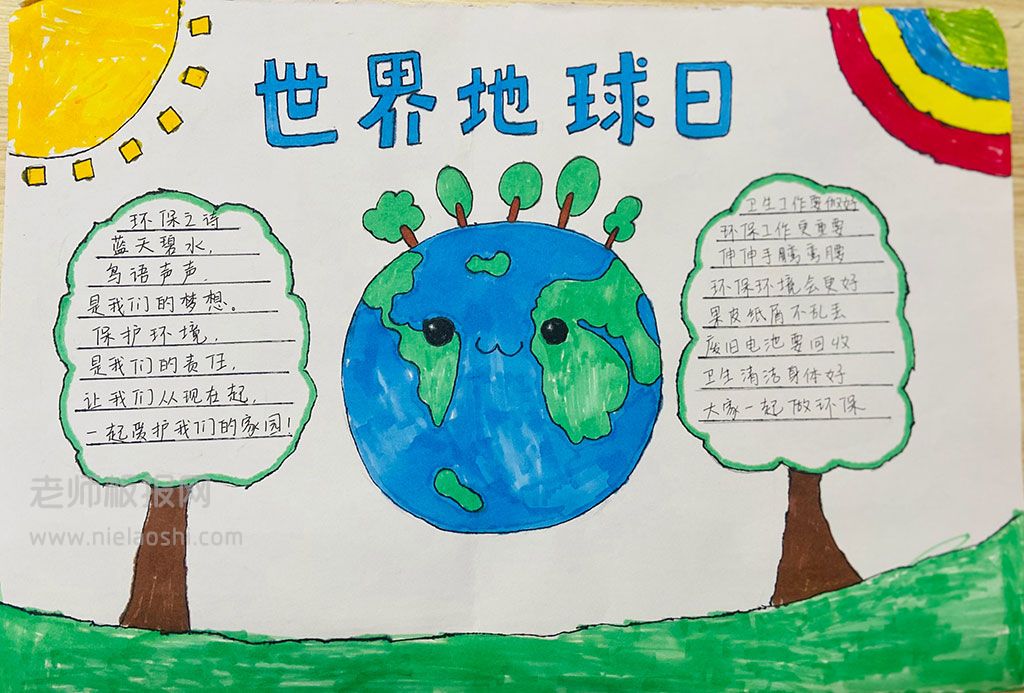 世界地球日
环保之诗
蓝天碧水,
鸟语声声.
是我们的梦想。
保护环境,
是我们的责任,
让我们从现在起,
一起爱护我们的家园!
卫生工作要做好
环保工作更重要
伸伸手腾弯腰
环保环境会更好
果皮纸屑不乱丢
废旧电池要回收
卫生清洁身体好
大家一起做环保
老师板报网
www.nielaoshi.com